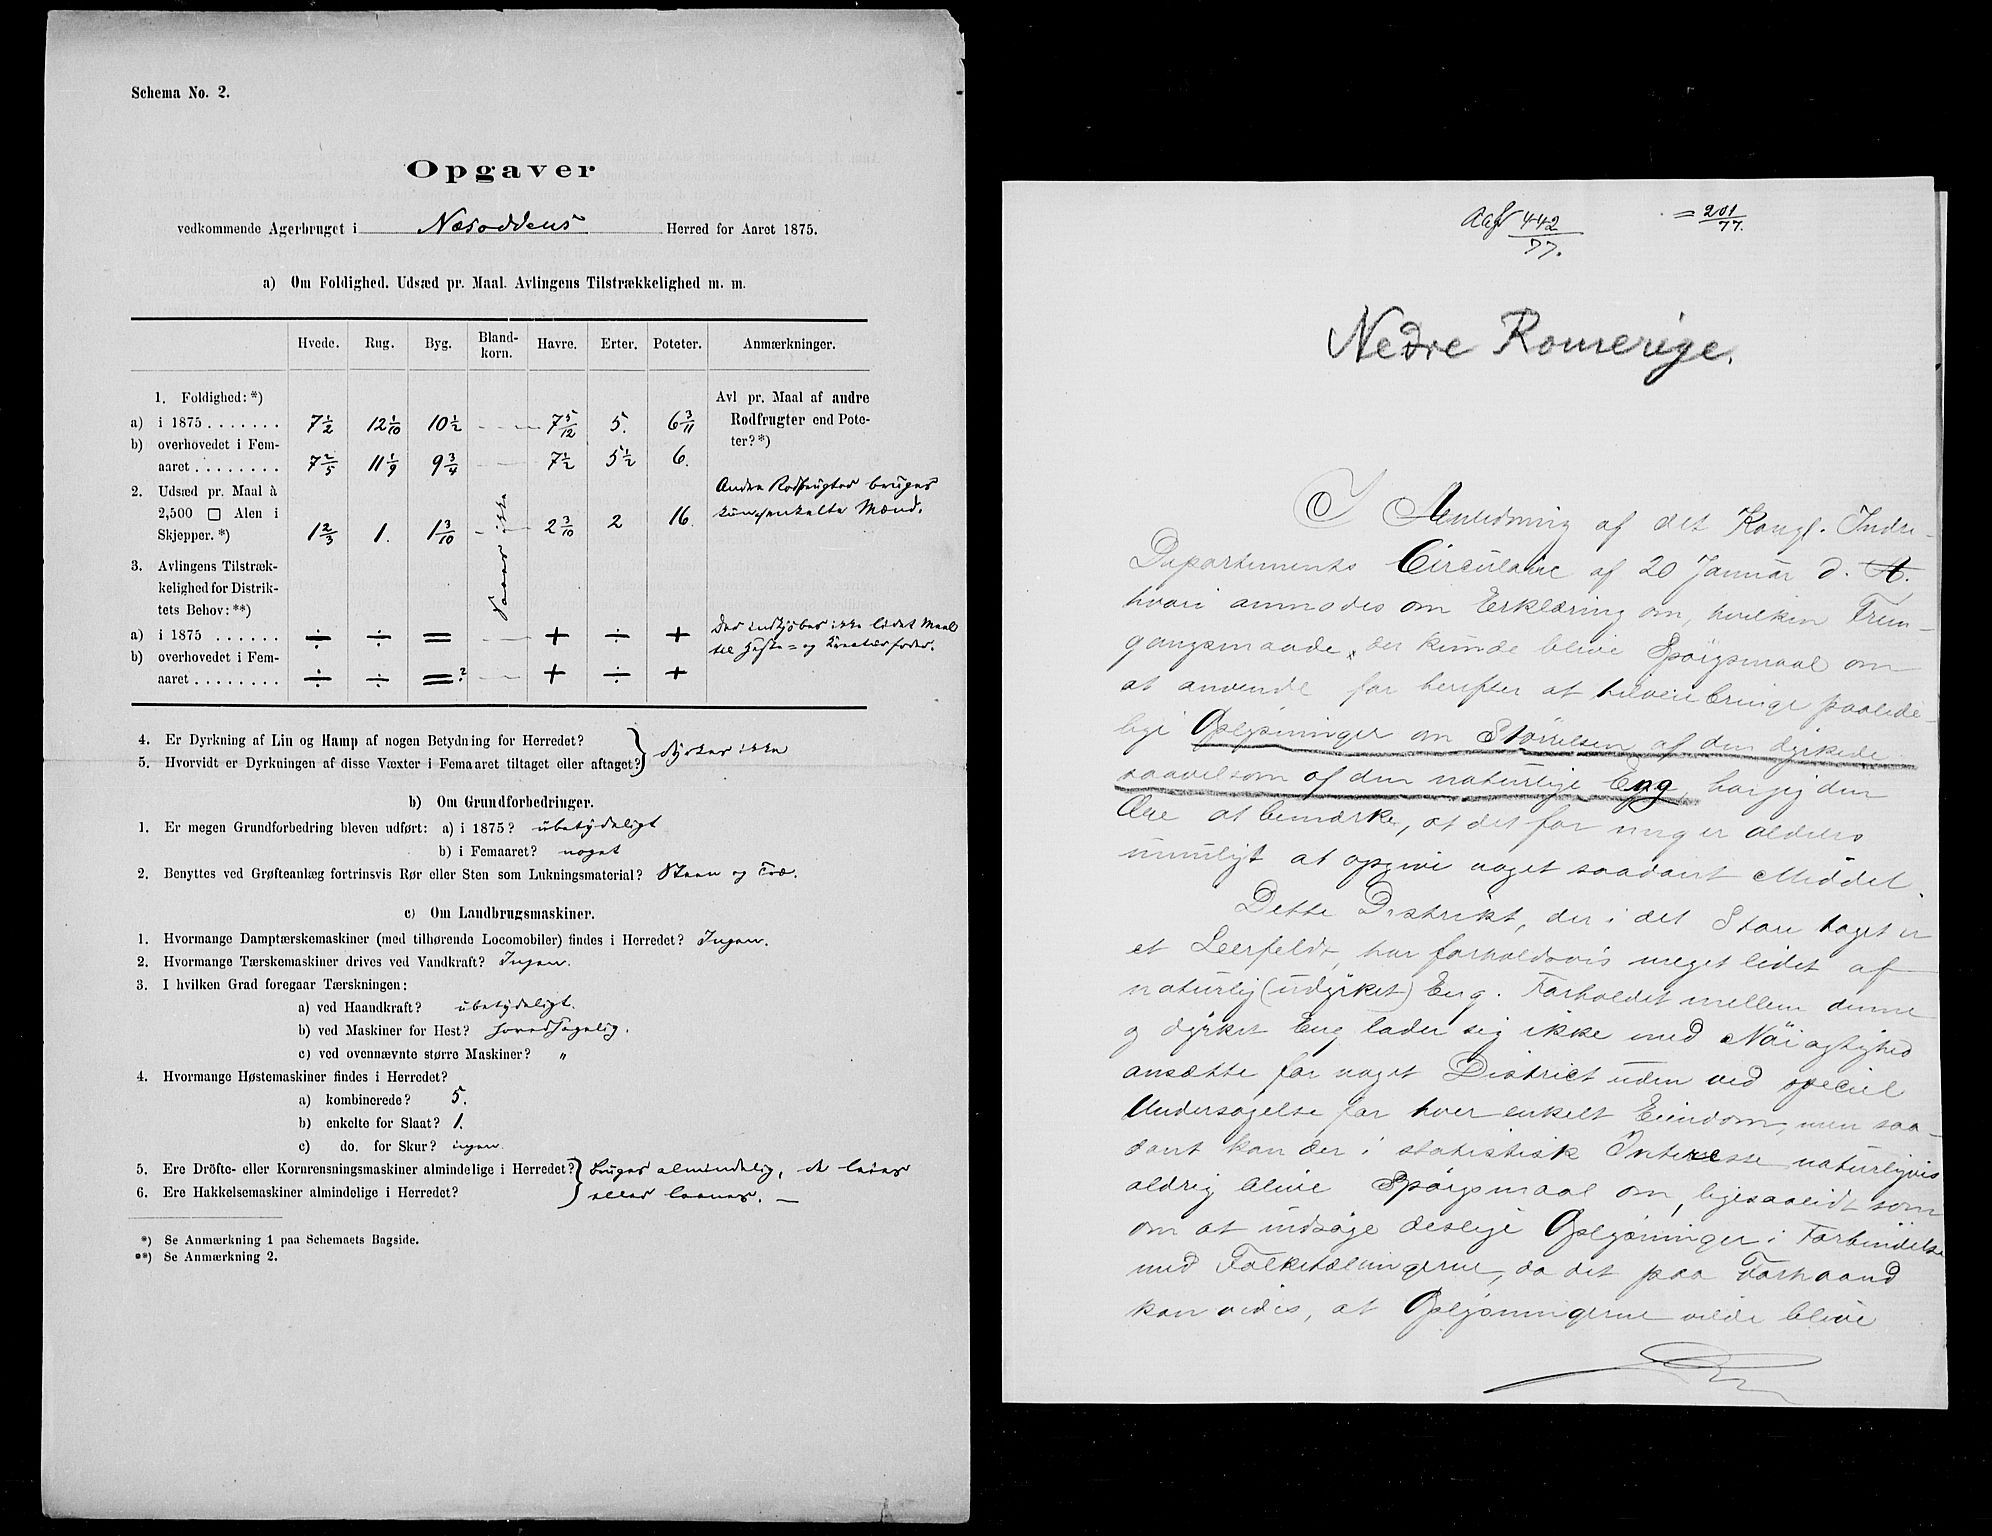 Schema No. 2.
Opgaver
vedkommende Agerbruget i Næsoddens Herred for Aaret 1875.
a) Om Foldighed. Udsæd pr. Maal. Avlingens Tilstrækkelighed m. m.
Hvede. Rug. Byg. Bland-korn. Havre. Erter. Poteter. Anmærkninger.
1. Foldighed:*)
a) i 1875 . . . . . . . 7 1/2 12 1/10 10 1/2 - - - 7 5/12 5. 6 3/11
b) overhovedet i Fem-
aaret . . . . . . . . 7 2/5 11 1/9 9 3/4 - - 7 1/2 5 1/2 6.
2. Udsæd pr. Maal à
2,500 □ Alen i
Skjepper. *) 1 2/3 1. 1 3/10 - 2 3/10 2 16.
Saaes ikke
3. Avlingens Tilstræk-
kelighed for Distrik-
tets Behov: **)
a) i 1875 . . . . . . ÷ ÷ = - + ÷ +
b) overhovedet i Fem-
aaret . . . . . . . . ÷ ÷ =? - - + ÷ +
Avl pr. Maal af andre
Rodfrugter end Pote-
ter?*)
Andre Rodfrugter bruges
kun enkelte Mænd.
Der indkjøbes ikke lidet Meel
til Heste- og Kreaturfoder.
4. Er Dyrkning af Lin og Hamp af nogen Betydning for Herredet?
5. Hvorvidt er Dyrkningen af disse Væxter i Femaaret tiltaget eller aftaget? } dyrkes ikke
b) Om Grundforbedringer.
1. Er megen Grundforbedring bleven udført: a) i 1875? ubetydeligt
b) i Femaaret? noget
2. Benyttes ved Grøfteanlæg fortrinsvis Rør eller Sten som Lukningsmateriale? Steen og Træ.
c) Om Landbrugsmaskiner.
1. Hvormange Damptærskemaskiner (med tilhørende Locomobiler) findes i Herredet? Ingen.
2. Hvormange Tærskemaskiner drives ved Vandkraft? Ingen.
3. I hvilken Grad foregaar Tærskningen:
a) ved Haandkraft? ubetydeligt.
b) ved Maskiner for Hest? hovedsagelig.
c) ved ovennævnte større Maskiner? "
4. Hvormange Høstemaskiner findes i Herredet?
a) kombinerede? 5.
b) enkelte for Slaat? 1.
c) do. for Skur? ingen.
5. Ere Dröfte- eller Kornrensningsmaskiner almindelige i Herredet? } Bruges almindelig, de leies
6. Ere Hakkelsemaskiner almindelige i Herredet? eller laanes. —
*) Se Anmærkning 1 paa Schemaets Bagside.
**) Se Anmærkning 2.
442/77. = 201/77.
Nedre Romerige.
I Anledning af det Kongl. Indre-
Departements Circulaire af 20 Januar d. A.
hvori anmodes om Erklæring om, hvilken Frem-
gangsmaade, der kunde blive Spörgsmaal om
at anvende for herefter at tilveiebringe paalide-
lige Oplysninger om Störrelsen af den dyrkede
saavelsom af den naturlige Eng, har jeg den
Ære at bemærke, at det for mig er aldeles
umuligt at opgive noget saadant Middel.
Dette Distrikt, der i det Store taget er
et Leerfeldt, har forholdsvis meget lidet af
naturlig (udyrket) Eng. Forholdet mellem denne
og dyrket Eng lader sig ikke med Nöiagtighed
ansætte for noget District uden ved speciel
Undersøgelse for hver enkelt Eiendom, men saa-
dant kan der i statistisk Interesse naturligvis
aldrig blive Spörgsmaal om, ligesaalidt som
om at indsöge deslige Oplysninger i Forbindelse
med Folketællingerne, da det paa Forhaand
kan vides, at Oplysningerne vilde blive